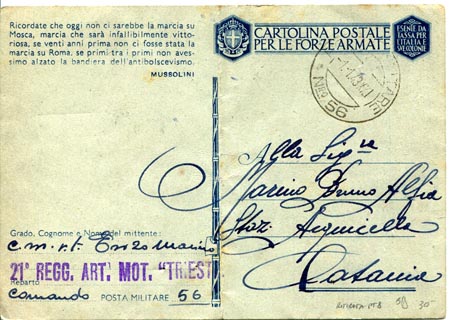 Ricordate che oggi non ci sarebbe la marcia su
Mosca, marcia che sarà infallibilmente vitto-
riosa, se venti anni prima non ci fosse stata la
marcia su Roma, se primi tra i primi non aves-
simo alzato la bandiera dell'antibolscevismo.
MUSSOLINI
CARTOLINA POSTALE
PER LE FORZE ARMATE
ESENTE DA
TASSA PER
L'ITALIA E
SUE COLONIE
56
Alla Sig.ra
Marino Bruno Alfia
Staz. Acquicella
Catania
Grado, Cognome e Nome del mittente:
c.m.r.t. Enzo Marino
21° REGG. ART. MOT. "TRIEST
Reparto
Comando POSTA MILITARE 56
30-